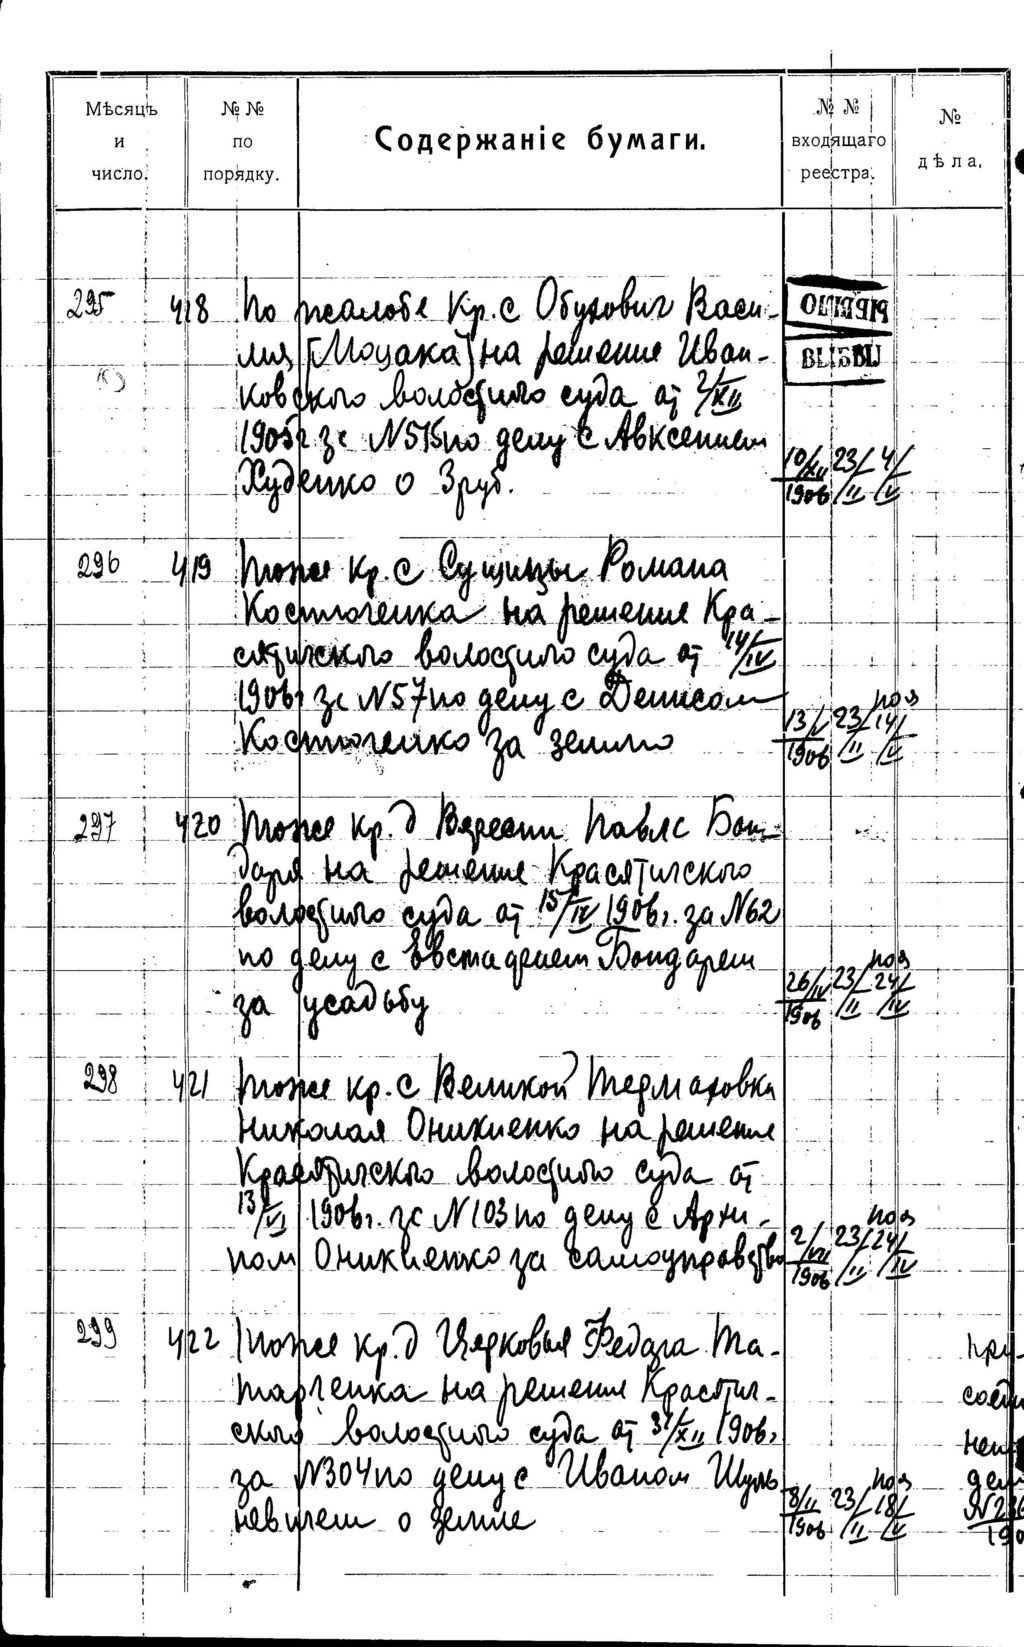 Мѣсяцъ
и
число.
№ №
по
порядку.
Содержаніе бумаги.
№ №
входящаго
реестра.
№
дѣла.
295 418 По жалобе Кр. с Обухович Васи-
лия [Моцака] на решение Иван-
ковского волостного суда от 2/XII
1905 г за №515 по делу с Авксением
Худенко о 3 руб.
10/XII 1906 23/II 4/V
ВЫБЫ
296 419 Тоже кр. с Сущицы Романа
Костюченка на решение Кра-
сятичского волостного суда от 14/IV
1906 г за №57 по делу с Денисом
Костюченко за землю
13/V 1906 23/II 14/V
297 420 Тоже кр. д Вересни Павла Бон-
даря на решение Красятичского
волостного суда от 15/IV 1906 г. за №62
по делу с Евстафием Бондарем
за усадьбу
26/IV 1906 23/II 24/IV
298 421 Тоже кр. с Великой Термаховки
Николая Оникиенко на решение
Красятичского волостного суда от
13/VI 1906 г. за №103 по делу с Архи-
пом Оникиенко за самоуправство
2/VII 1906 23/II 24/IV
299 422 Тоже кр. д Церковья Федора Та-
тарченка на решение Красятич-
ского волостного суда от 31/XII 1906 г
за №304 по делу с Иваном Шуль
невичем о земле
8/II 1906 23/II 18/V
при-
соеди
нен